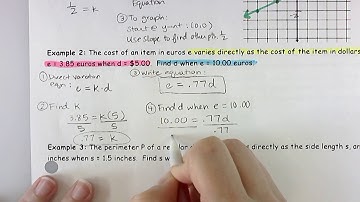 1/2 = k
Equation
③ To graph:
Start @ y-int: (0,0)
Use slope to find other pts. 1/2
-2
Example 2: The cost of an item in euros e varies directly as the cost of the item in dollars
e = 3.85 euros when d = $5.00 Find d when e = 10.00 euros.
① Direct variation eqn: e = k·d
③ Write equation:
e = .77d
② Find k
3.85 = k(5)
5 5
.77 = k
④ Find d when e = 10.00
10.00 = .77d
.77
Example 3: The perimeter P of a
directly as the side length s,
inches when s = 1.5 inches. Find s